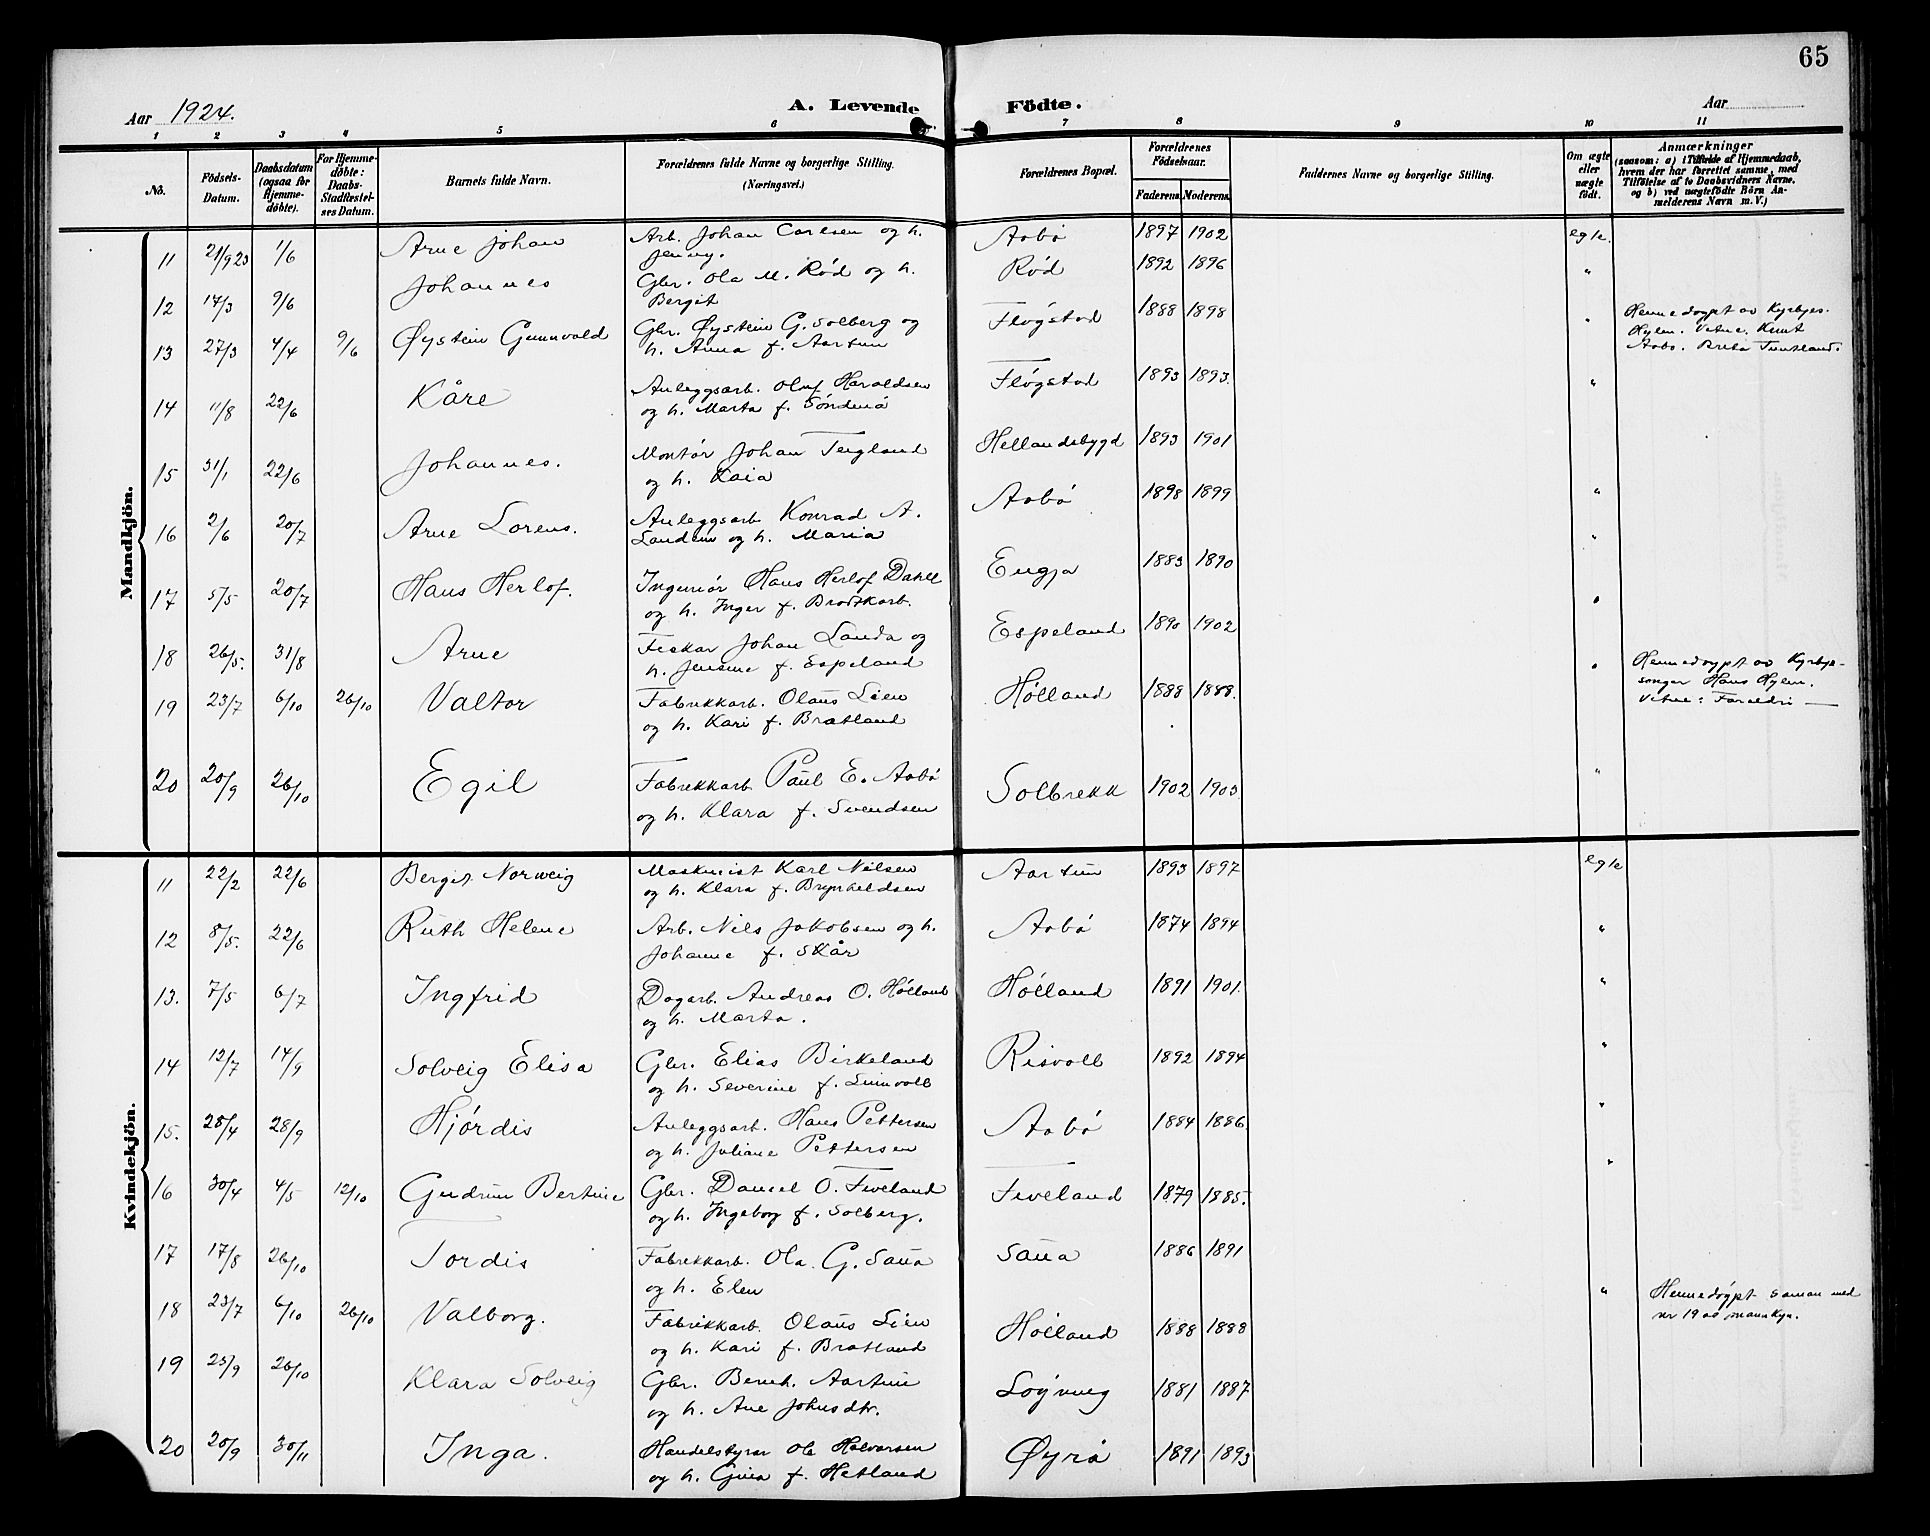 65
Aar 1924. A. Levende Födte. Aar
1 2 3 4 5 6 7 8 9 10 11
No. Födsels-Datum. Daabsdatum (ogsaa for Hjemmedöbte). For Hjemmedöbte: Daabs-Stadfæstelses Datum. Barnets fulde Navn. Forældrenes fulde Navne og borgerlige Stilling. (Næringsvei.) Forældrenes Bopæl. Forældrenes Födselsaar. Faderens Moderens Faddernes Navne og borgerlige Stilling. Om ægte eller uægte födt. Anmærkninger (saasom: a) i Tilfælde af Hjemmedaab, hvem der har forrettet samme, med Tilföielse af to Daabsvidners Navne, og b) ved uægtefödte Börn Anmelderens Navn m. V.)
Mandkjön.
11 21/9 23 1/6 Arne Johan Arb. Johan Carlsen og h. Jenny. Aabø 1897 1902 egte.
12 17/3 9/6 Johannes Gbr. Ola M. Rød og h. Bergit Rød 1892 1896 "
13 27/3 4/4 9/6 Øystein Gunnvald Gbr. Øystein G. Solberg og h. Anna f. Aartun Fløgstad 1888 1898 " Hemedøypt av Kyrkjes. Hylen. Vitne. Knut Aabø. Brita Tuntland.
14 11/8 22/6 Kåre Anleggsarb. Oluf Haraldsen og h. Marta f. Søndenå Fløgstad 1893 1893. "
15 31/1 22/6 Johannes. Montør Johan Tengland og h. Kaia Hellandsbygd 1893 1901
16 2/6 20/7 Arne Lorens. Anleggsarb. Konrad A. Landem og h. Maria Aabø 1898 1899 "
17 5/5 20/7 Hans Herlof. Ingeniør Hans Herlof Dahll og h. Inger f. Brodtkorb. Eugja 1883 1890 "
18 26/5. 31/8 Arne Fiskar Johan Landa og h. Jensine f. Espeland Espeland 1890 1902 "
19 23/7 6/10 26/10 Valtor Fabrikkarb. Olaus Lien og h. Kari f. Bratland Hølland 1888 1888. " Hemedøypt av Kyrkje-songer Hans Hylen. Vitne: Foreldri —
20 20/9 26/10 Egil Fabrikkarb. Paul E. Aabø og h. Klara f. Svendsen Solbrekk 1902 1903. "
Kvindekjön.
11 22/2 22/6 Bergit Norveig Maskinist Karl Nilsen og h. Klara f. Brynhildsen Aartun 1893 1897 egte
12 8/5. 22/6 Ruth Helene Arb. Nils Jakobsen og h. Johanne f. Skår Aabø 1874 1894 "
13. 7/5 6/7 Ingfrid Dagarb. Andreas O. Hølland og h. Marta. Hølland 1891 1901. "
14 12/7 14/9 Solveig Elisa Gbr. Elias Birkeland og h. Severine f. Linnvoll Risvoll 1892 1894 "
15. 28/4 28/9 Hjørdis Anleggsarb. Hans Pettersen og h. Juliane Pettersen Aabø 1884 1886. "
16 30/4 4/5 12/10 Gudrun Bertine Gbr. Daniel O. Fiveland og h. Ingeborg f. Solberg. Fiveland 1879 1885. "
17 17/8 26/10 Tordis Fabrikkarb. Ola G. Saua og h. Elen Saua 1886 1891
18 23/7 6/10 26/10 Valborg. Fabrikkarb. Olaus Lien og h. Kari f. Bratland Hølland 1888 1888 " Hemedøypt saman med nr 19 av mannkyn.
19 25/9 26/10 Klara Solveig Gbr. Bernh. Aartun og h. Ane Johnsdtr. Løyning 1881 1887
20 20/9 30/11 Inga. Handelstyrar Ole Halvorsen og h. Gina f. Hetland Øyrå 1891 1893